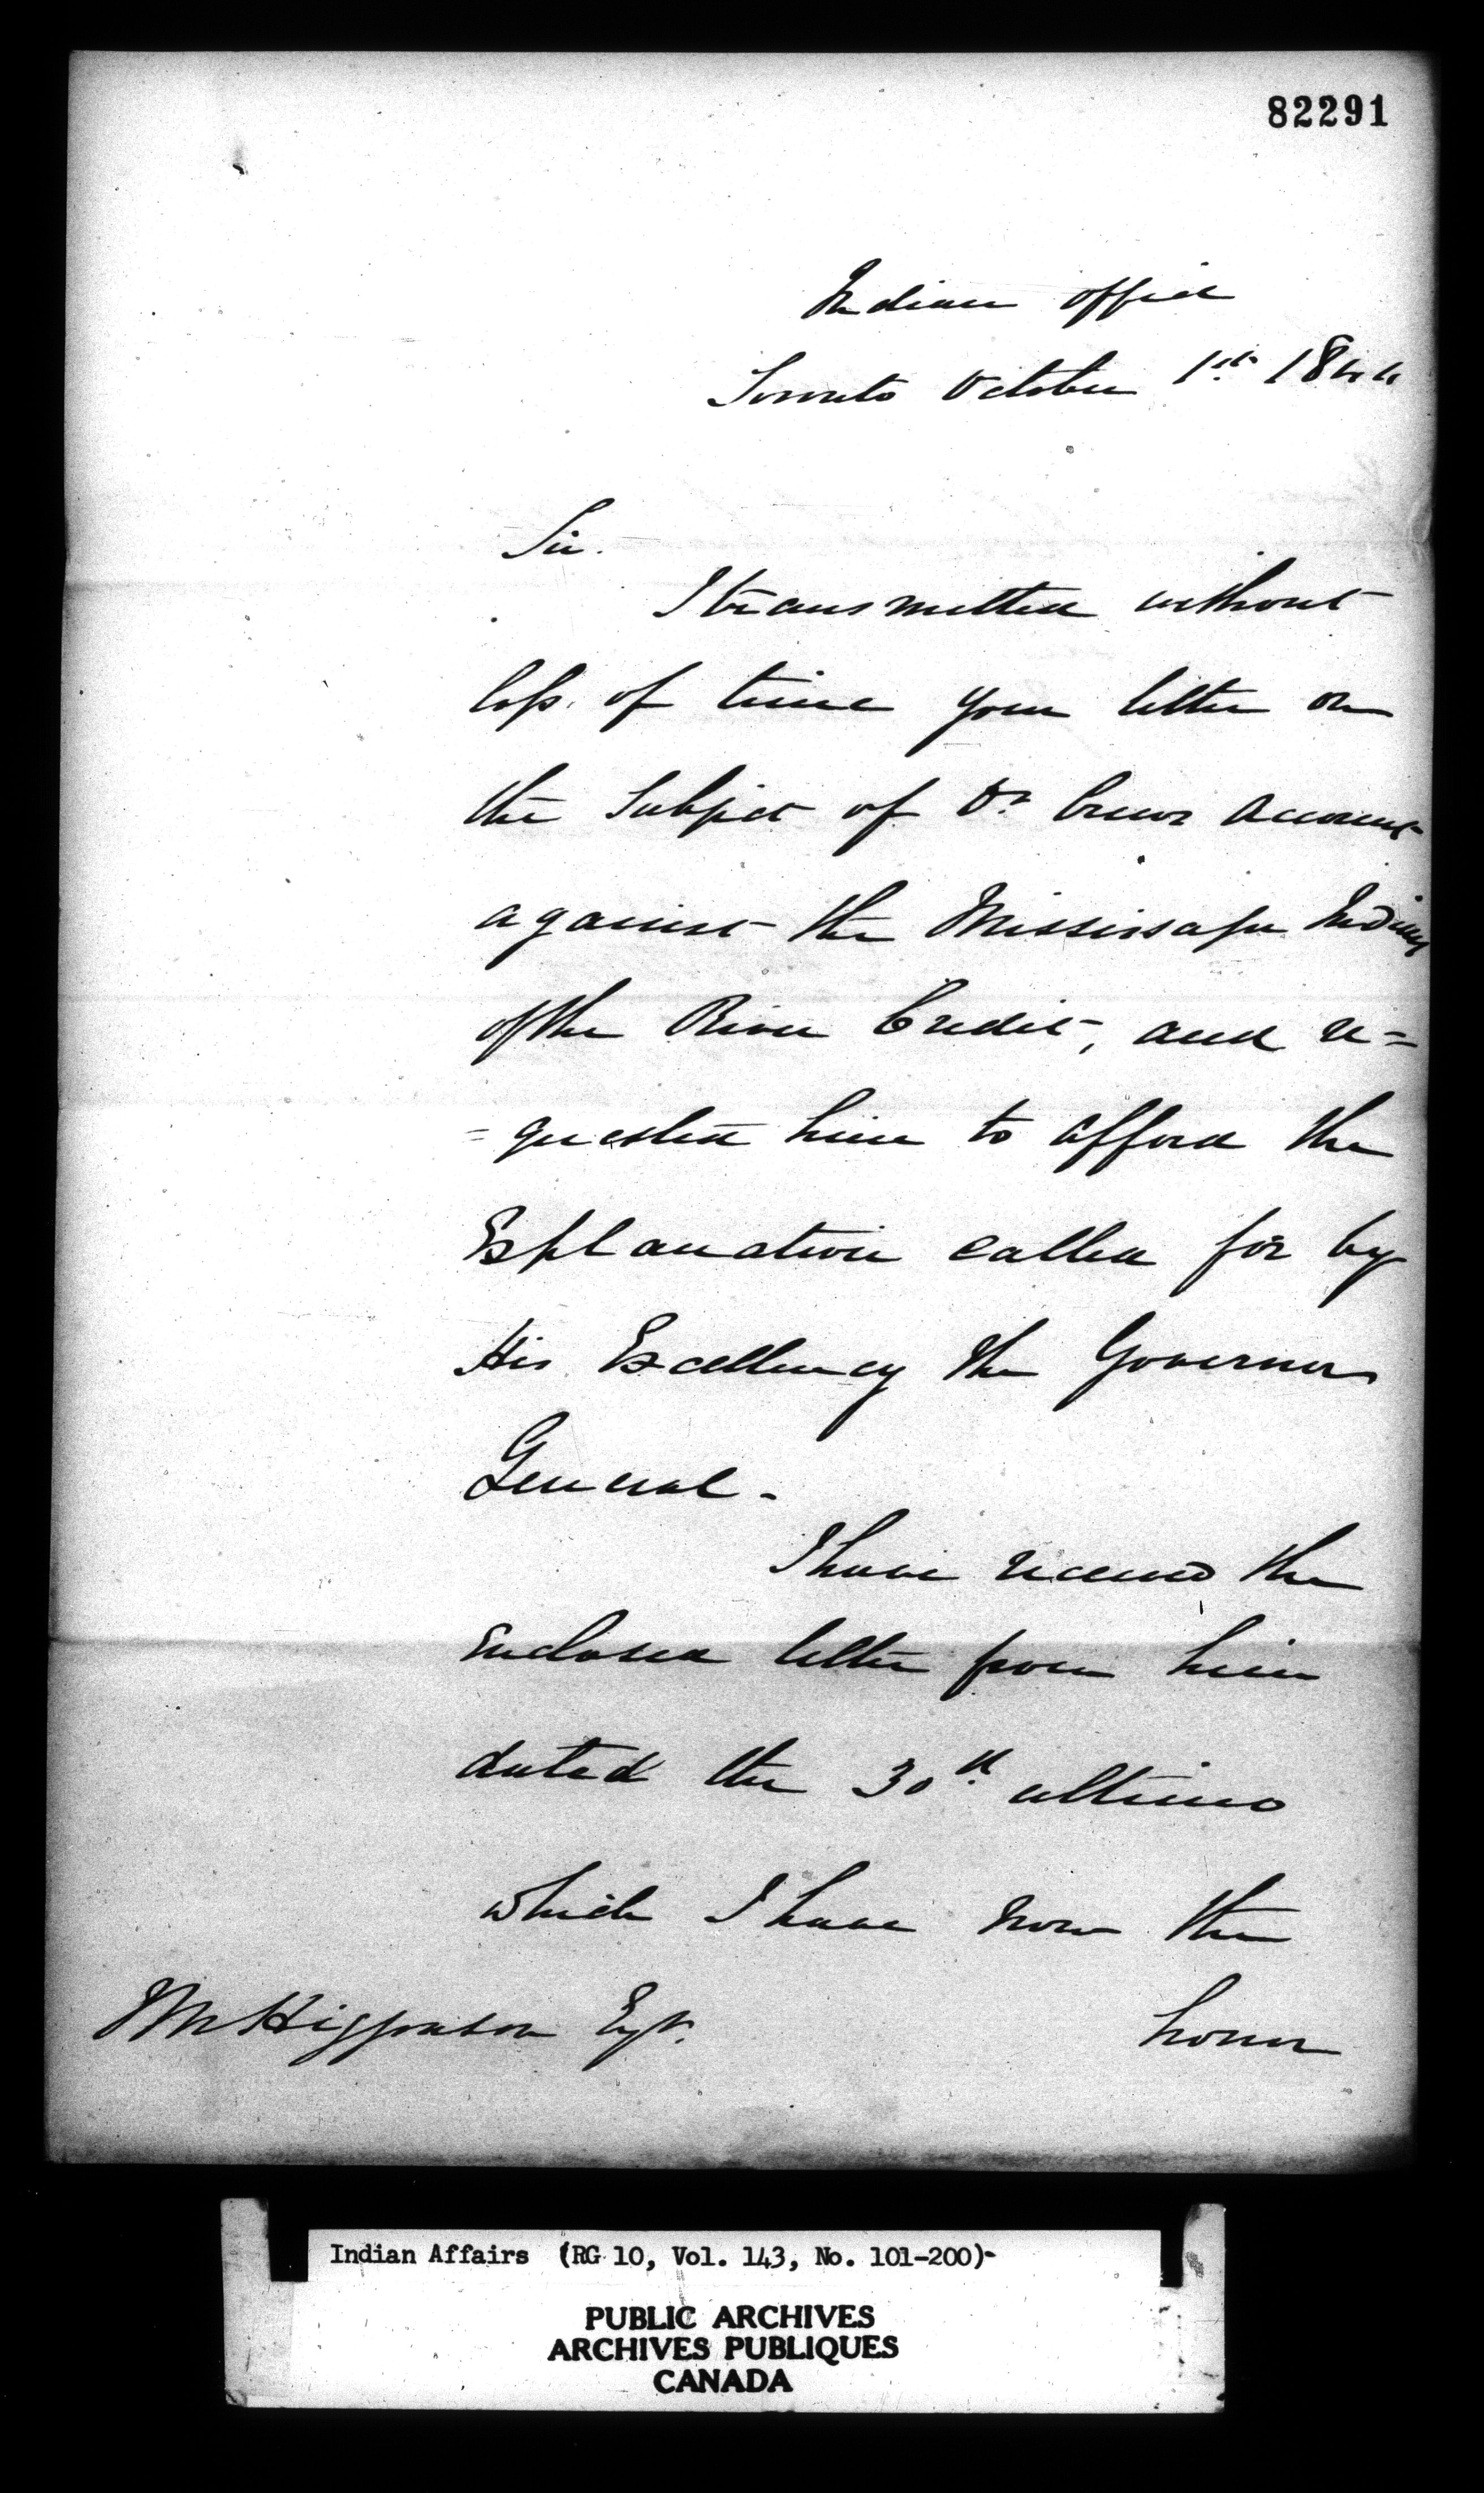 82291
Indian Office
Toronto October 1st 1844
Sir.
I transmitted without
loss of time your letter on
the Subject of Dr. Account
against the Mississaga Indians
of the River Credit, and re=
=quested him to afford the
Explanation called for by
His Excellency the Governor
General -
I have received the
enclosed letter from him
dated the 30th. ultimo
which I have now the
honor
Higginson Esqr.
Indian Affairs (RG 10, Vol. 143, No. 101-200)-
PUBLIC ARCHIVES
ARCHIVES PUBLIQUES
CANADA